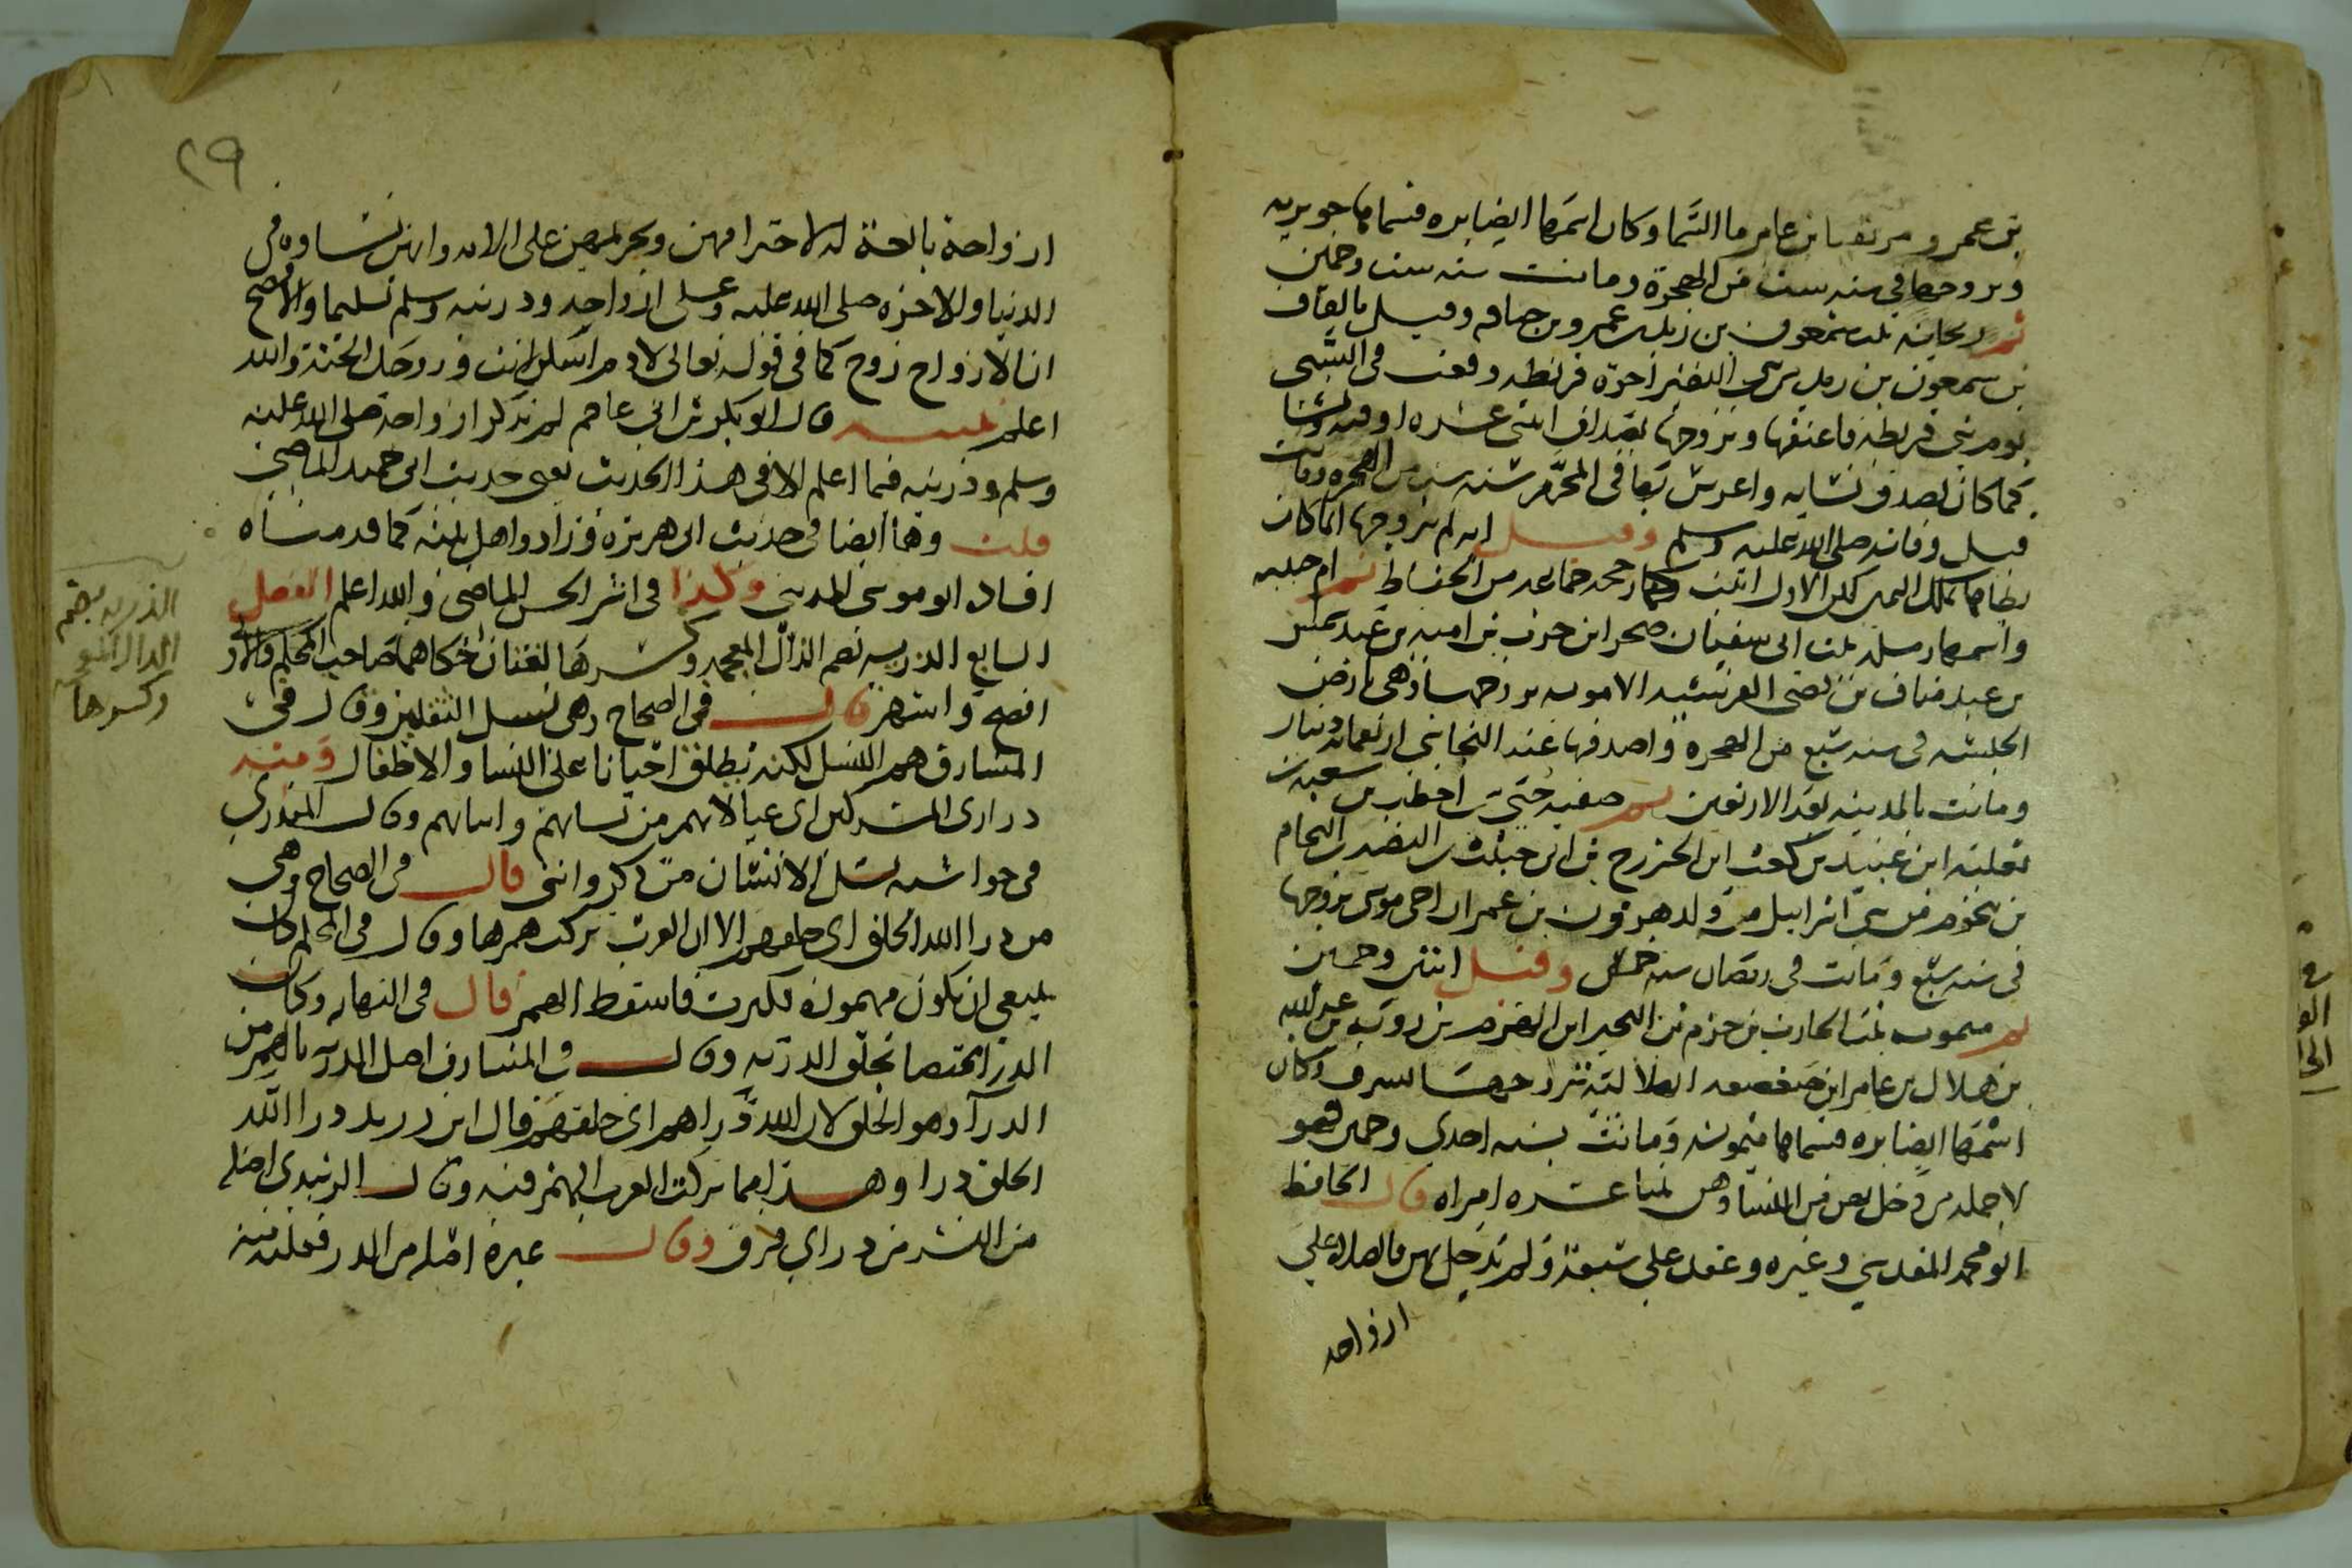 بن عمرو مزيقيا بن عامر ما السما وكان اسمها ايضا بره فسماها جويريه
وتزوجها في سنه ست من الهجرة وماتت سنه ست وخمسين
ثم ريحانه بنت شمعون بن زيد بن عمرو بن خنافه وقيل بالقاف
بن سمعون بن زيد من بني النضير اخوة قريظه وقعت في السبي
يوم بني قريظه فاعتقها وتزوجها بصداق اثنتي عشره اوقيه ونشا
كما كان يصدق نسايه واعرس بها في المحرم سنه ست من الهجره وماتت
قبل وفاته صلى الله عليه وسلم وقيل انه لم يتزوجها انما كان
يطاها بملك اليمين لكن الاول اثبت كما رجحه جماعه من الحفاظ ثم ام حبيبه
واسمها رمله بنت ابي سفيان صخر ابن حرب بن اميه بن عبد شمس
بن عبد مناف بن قصي القرشيه الامويه تزوجها وهي بارض
الحبشه في سنه سبع من الهجرة واصدقها عنه النجاشي اربعمايه دينار
وماتت بالمدينه بعد الاربعين ثم صفيه بنت حيي بن اخطب بن سعيه بن
ثعلبه ابن عبيد بن كعب ابن الخزرج بن ابي حبيب بن النضير بن النحام
بن ينحوم من بني اسرائيل من ولد هرون بن عمران اخي موسى تزوجها
في سنه سبع وماتت في رمضان سنه خمس وقيل اثنتين وخمسين
ثم ميمونه بنت الحارث بن حزم بن البجير ابن الهزم بن رويبه بن عبد الله
بن هلال بن عامر ابن صعصعه الهلاليه تزوجها بسرف وكان
اسمها ايضا بره فسماها ميمونه وماتت سنه احدى وخمسين فهو
لا جمله من دخل بهن من النسا وهن اثنتا عشره امراه قال الحافظ
ابو محمد المقدسي وغيره وعقد على سبعة ولم يدخل بهن فالصلاه على
ازواجه
٢٩
ازواجه تابعة له لاحترامهن وتحريمهن على الامه وانهن نساوه في
الدنيا والاخره صلى الله عليه وعلى ازواجه وذريته وسلم تسليما والافصح
ان الازواج زوج كما في قوله تعالى لادم اسكن انت وزوجك الجنة والله
اعلم تنبيه قال ابو بكر بن ابي عاصم لم يذكر ازواجه صلى الله عليه
وسلم وذريته فيما اعلم الا في هذا الحديث يعني حديث ابي حميد الماضي
قلت وهما ايضا في حديث ابي هريره وزاد واهل بيته كما قدمناه
افاد ابو موسى المديني وكذا في اثر الحسن الماضي والله اعلم الفصل
السابع الذريه بضم الذال المعجمه وكسرها لغتان حكاهما صاحب المحكم والاولى
افصح واشهر قال في الصحاح وهي نسل الثقلين وقال في
المشارق هم النسل لكنه يطلق احيانا على النسا والاطفال ومنه
ذراري المشركين اي عيالاتهم من نسائهم وابنائهم وقال المنذري
في حواشيه نسل الانسان من ذكر وانثى قال في الصحاح وهي
من ذرا الله الخلق اي خلقهم الا ان العرب تركت همزها وقال في المحكم كان
ينبغي ان يكون مهموزه فكثرت فاسقط الهمز قال في النهايه وكان
الذر مختصا بخلق الذريه وقال في المشارق اصل الذريه بالهمز من
الذرا وهو الخلق لان الله ذراهم اي خلقهم قال ابن دريد ذرا الله
الخلق ذرا وهذا مما تركت العرب الهمز فيه وقال الزبيدي اصله
من النشر من ذر اي فرق وقال غيره اصله من الذر فعليه منه
الذريه بضم
الذال المعجمه
وكسرها